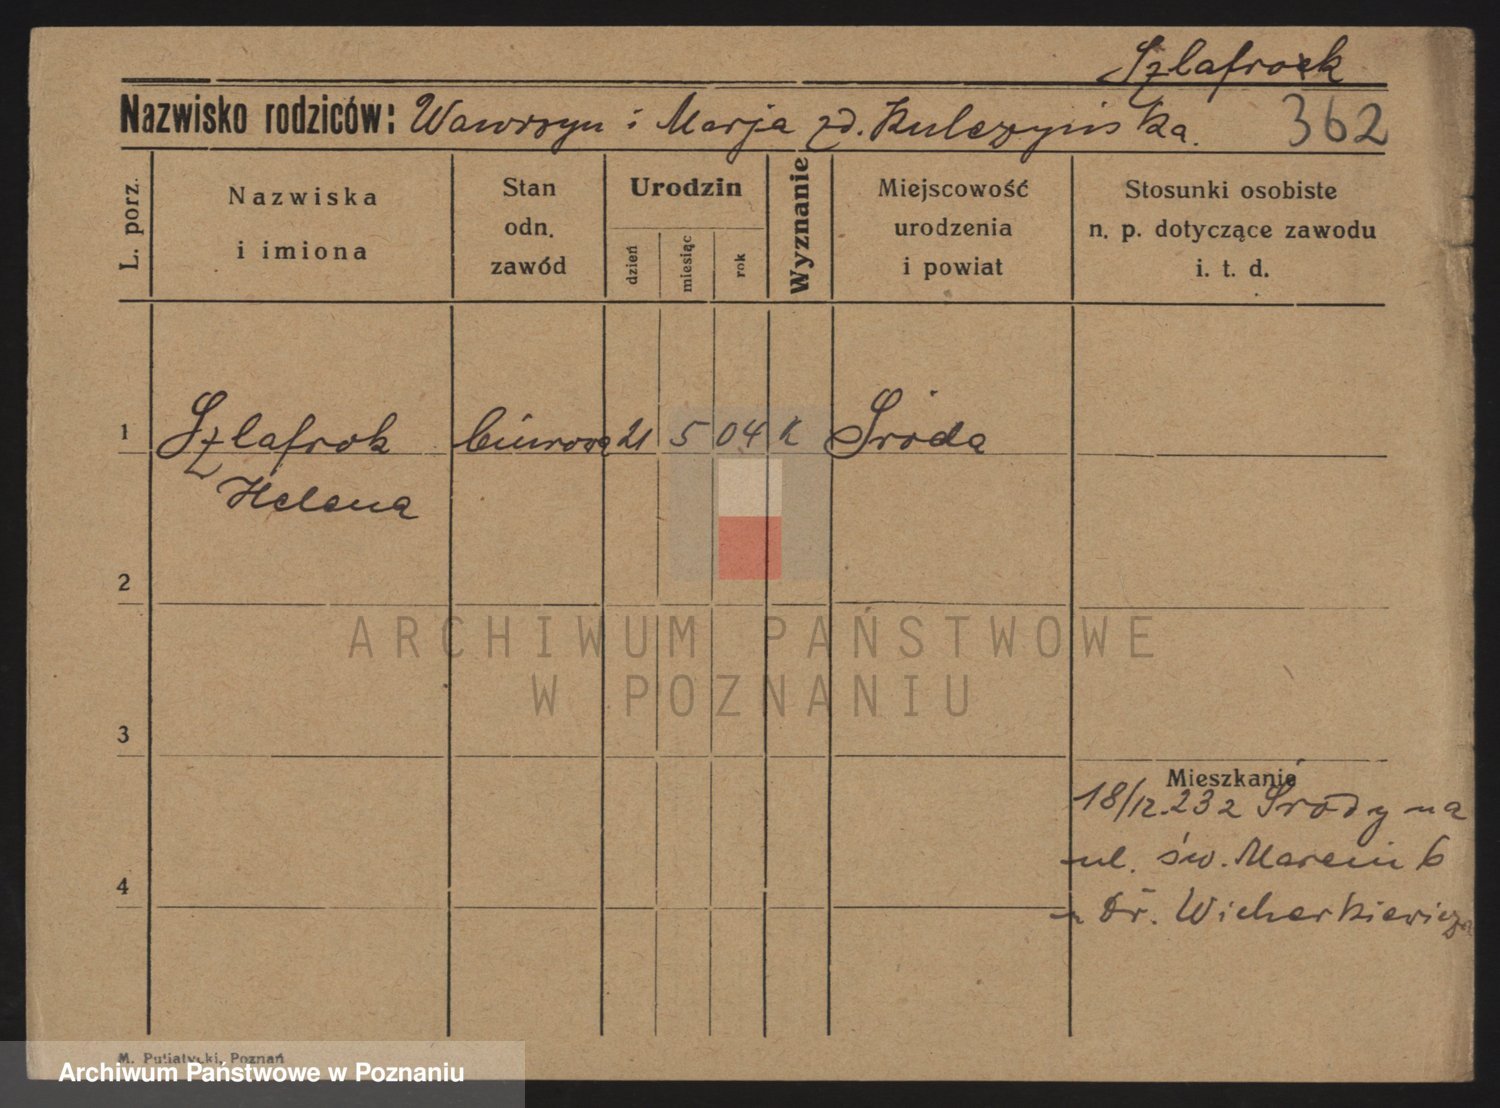 Szlafrock
Nazwisko rodziców: Wawrzyn i Marja zd. Kulczyńska.
362
L. porz.
Nazwiska
i imiona
Stan
odn.
zawód
Urodzin
dzień
miesiąc
rok
Wyznanie
Miejscowość
urodzenia
i powiat
Stosunki osobiste
n. p. dotyczące zawodu
i. t. d.
1 Szlafrok biurowa 21 5 04 K Środa
Helena
2
ARCHIWUM PAŃSTWOWE
W POZNANIU
3
Mieszkanie
18/12.23 z Środy na
ul. św. Marcin 6
u Dr. Wicherkiewicza
4
M. Putiatycki, Poznań
Archiwum Państwowe w Poznaniu